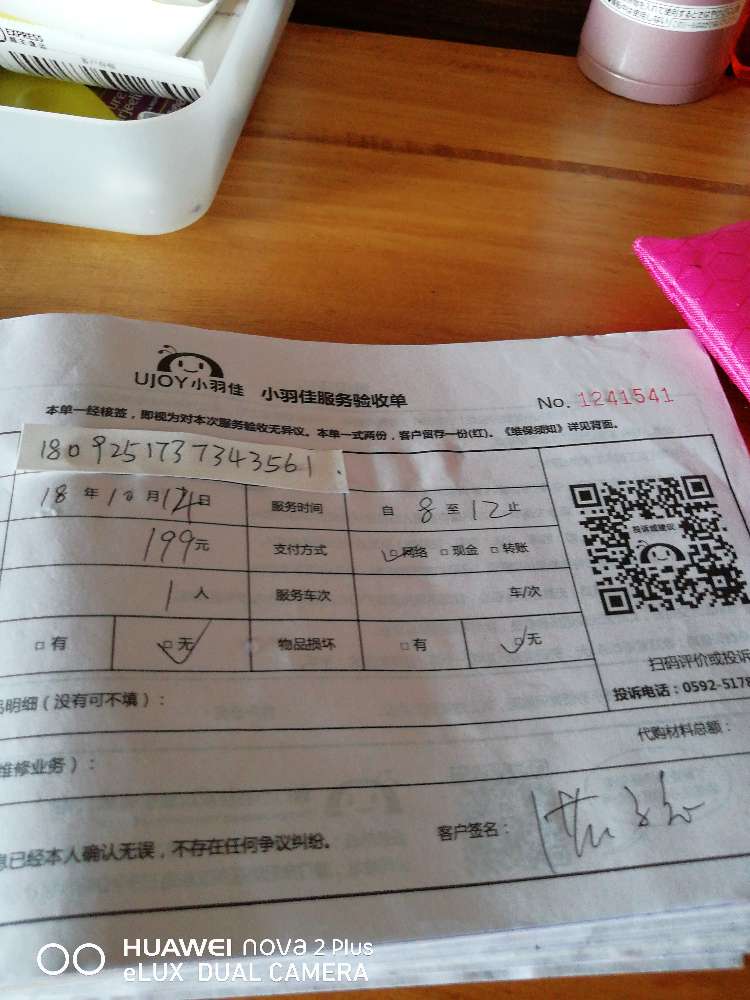 EXPRESS
UJOY小羽佳 小羽佳服务验收单 No. 1241541
本单一经核签，即视为对本次服务验收无异议。本单一式两份，客户留存一份(红)。《维保须知》详见背面。
180925173734356 1.
18 年 10 月 14 日 服务时间 自 8 至 12 止
199元 支付方式 网络 现金 转账
1 人 服务车次 车/次
有 无 物品损坏 有 无
投诉或建议
扫码评价或投诉
投诉电话：0592-5178
明细（没有可不填）：
代购材料总额：
维修业务）：
息已经本人确认无误，不存在任何争议纠纷。
客户签名：
HUAWEI nova 2 Plus
eLUX DUAL CAMERA